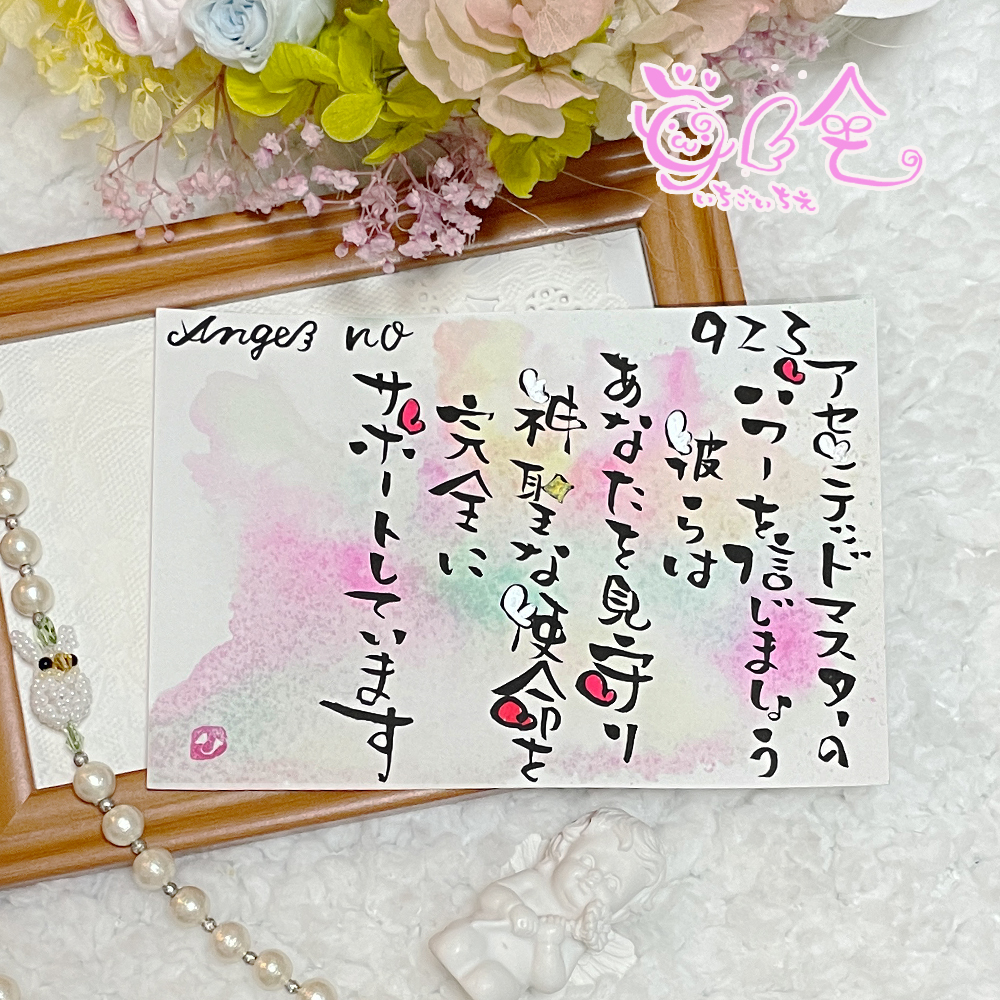 Angel no 923
アセンテッドマスターの
パワーを信じましょう
彼らは
あなたを見守り
神聖な使命を
完全に
サポートしています
いちごいちえ